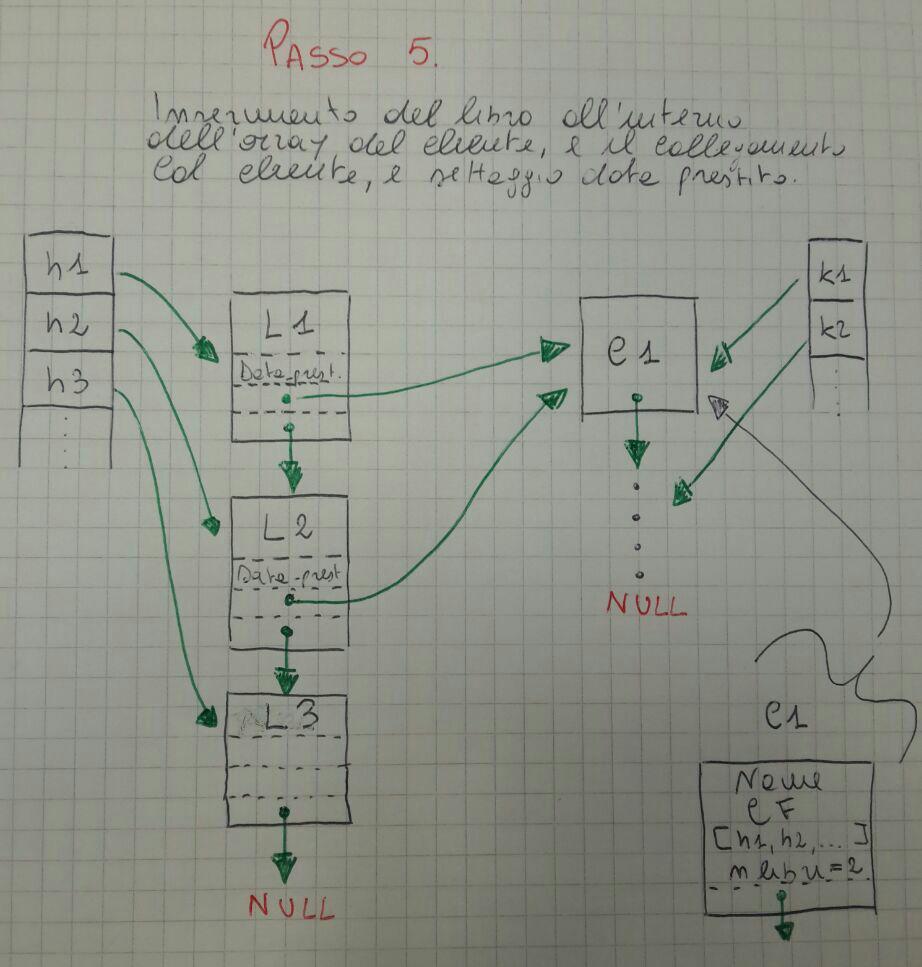 PASSO 5.
Inserimento del libro all'interno
dell'array del cliente, e il collegamento
col cliente, e settaggio data prestito.
h1
h2
h3
L1
Data_prest.
L2
Data_prest
L3
NULL
C1
NULL
k1
k2
C1
Nome
CF
[h1, h2, ... ]
n libri = 2